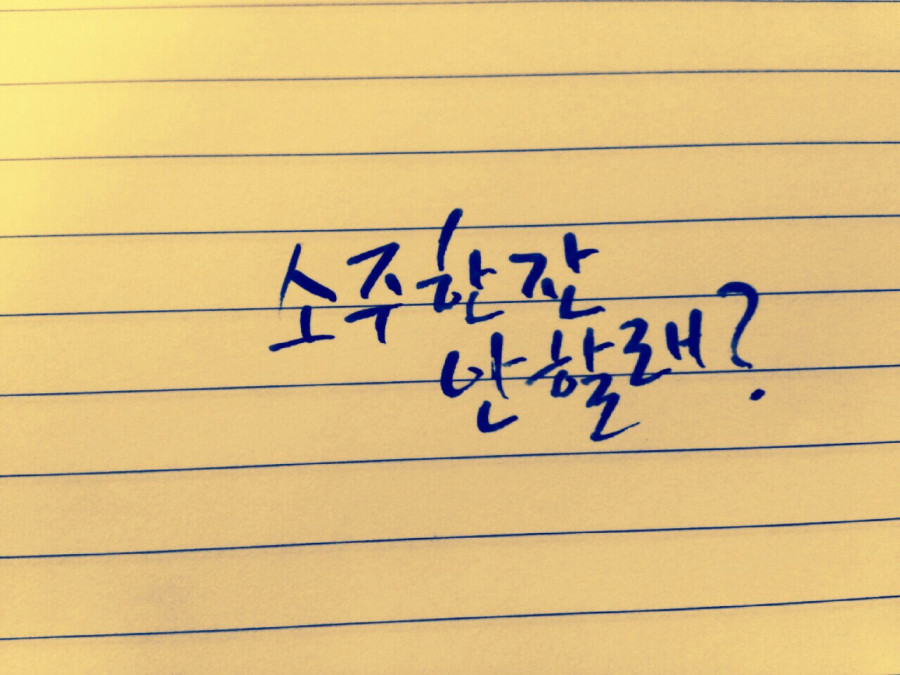 소주한잔
안할래?